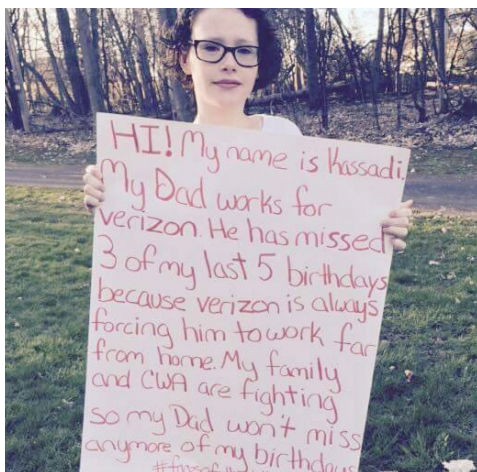 HI! My name is Kassadi.
My Dad works for
verizon. He has missed
3 of my last 5 birthdays
because verizon is always
forcing him to work far
from home. My family
and CWA are fighting
so my Dad won't miss
anymore of my birthdays